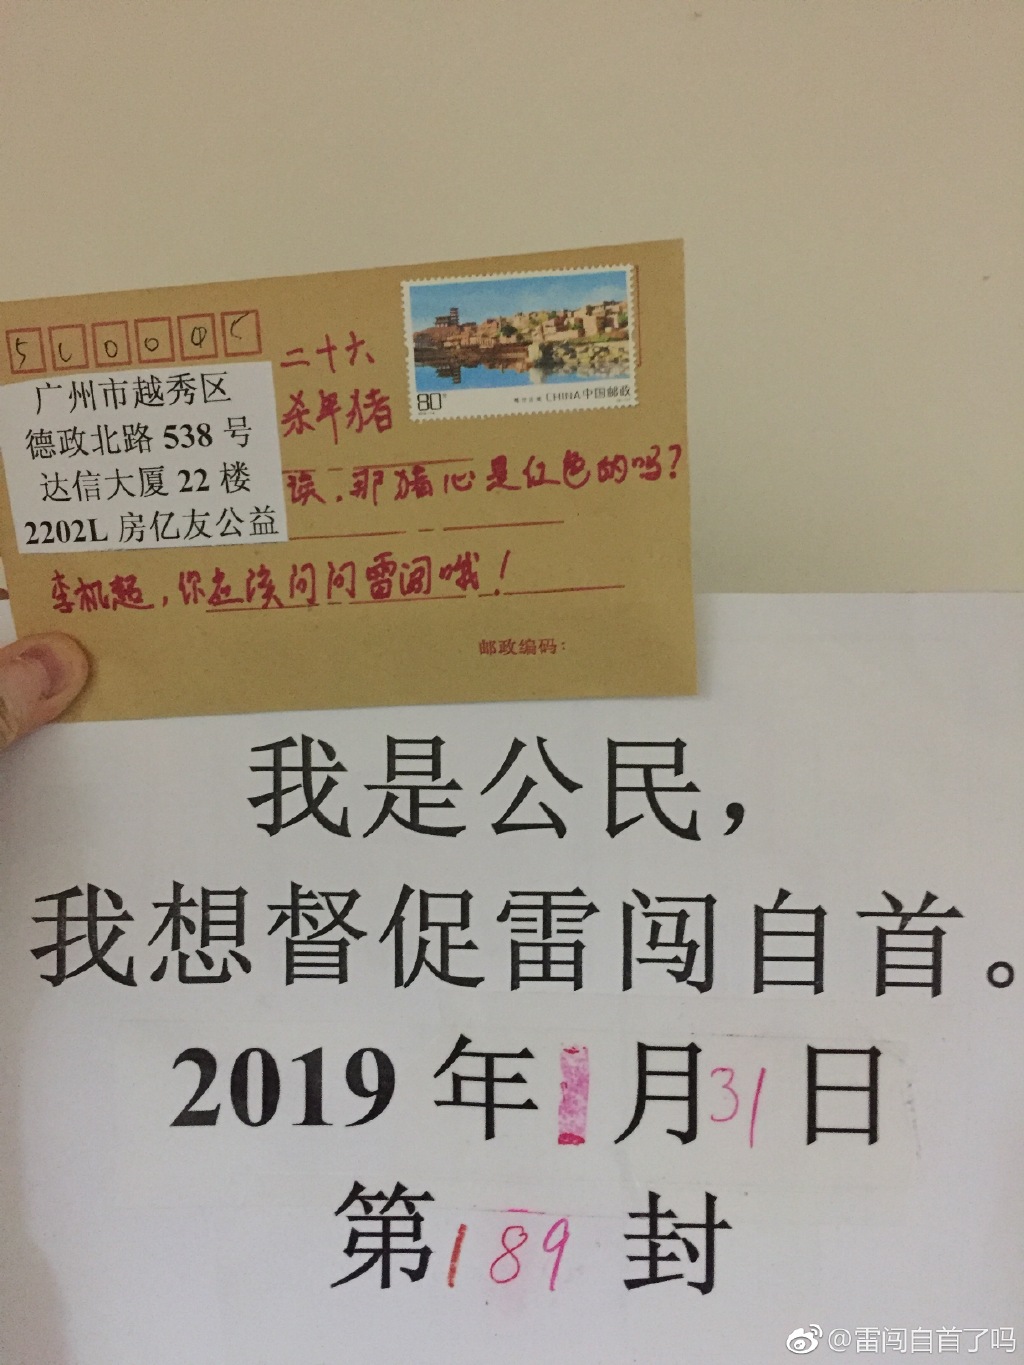 510045
二十六
杀年猪
广州市越秀区
德政北路 538 号
达信大厦 22 楼
2202L 房亿友公益
80分
CHINA 中国邮政
诶，那猪心是红色的吗？
李机超，你应该问问雷闯哦！
邮政编码：
我是公民，
我想督促雷闯自首。
2019 年 1 月 31 日
第 189 封
@雷闯自首了吗